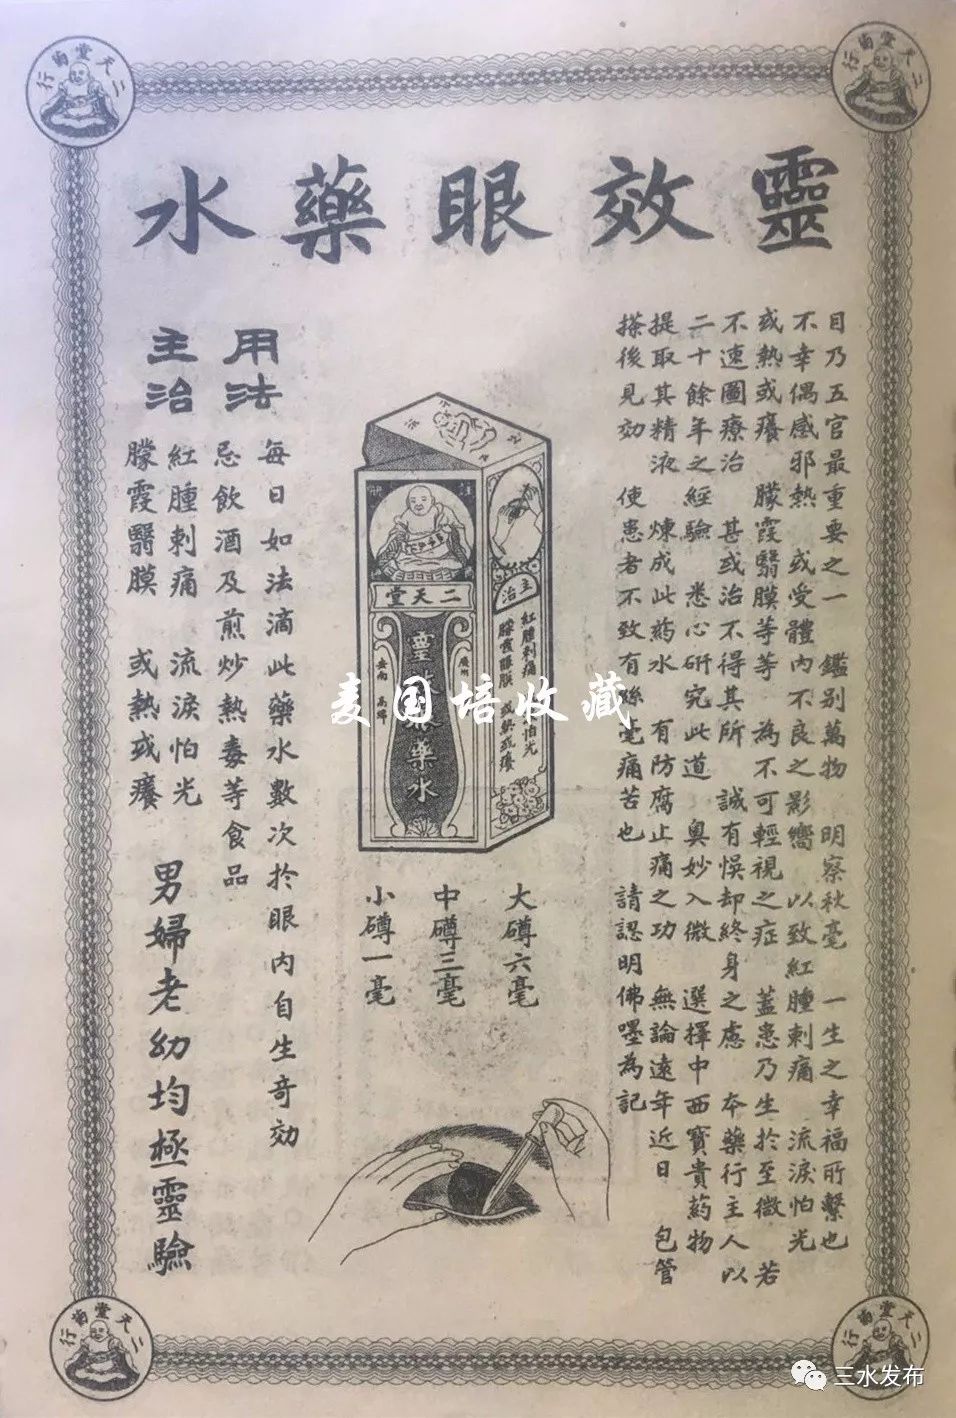 靈效眼藥水
目乃五官最重要之一 鑑別萬物 明察秋毫 一生之幸福所繫也
不幸偶感邪熱 或受體內不良之影嚮 以致紅腫刺痛 流淚怕光
或熱或癢 朦霞翳膜等等 為不可輕視之症 蓋患乃生於至微 若
不速圖療治 甚或治不得其所 誠有悞却終身之慮 本藥行主人以
二十餘年之經驗 悉心研究此道 奧妙入微 選擇中西寶貴葯物
提取其精液 煉成此葯水 有防腐止痛之功 無論遠年近日 包管
搽後見効 使患者不致有絲毫痛苦也 請認明佛嘜為記
二天堂
靈 藥水
主治
紅腫刺痛 怕光
朦霞翳膜 或熱或癢
大罇六毫
中罇三毫
小罇一毫
用法
每日如法滴此藥水數次於眼內自生奇効
忌飲酒及煎炒熱毒等食品
主治
紅腫刺痛 流淚怕光
朦霞翳膜 或熱或癢
男婦老幼均極靈驗
二天堂葯行
二天堂葯行
二天堂葯行
二天堂葯行
麦国培收藏
三水发布